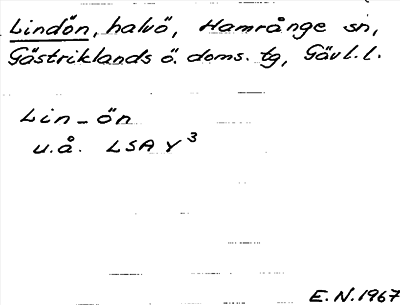 Lindön, halvö, Hamrånge sn,
Gästriklands ö. doms. tg, Gävl. l.
Lin-ön
u.å. LSA Y³
E.N. 1967